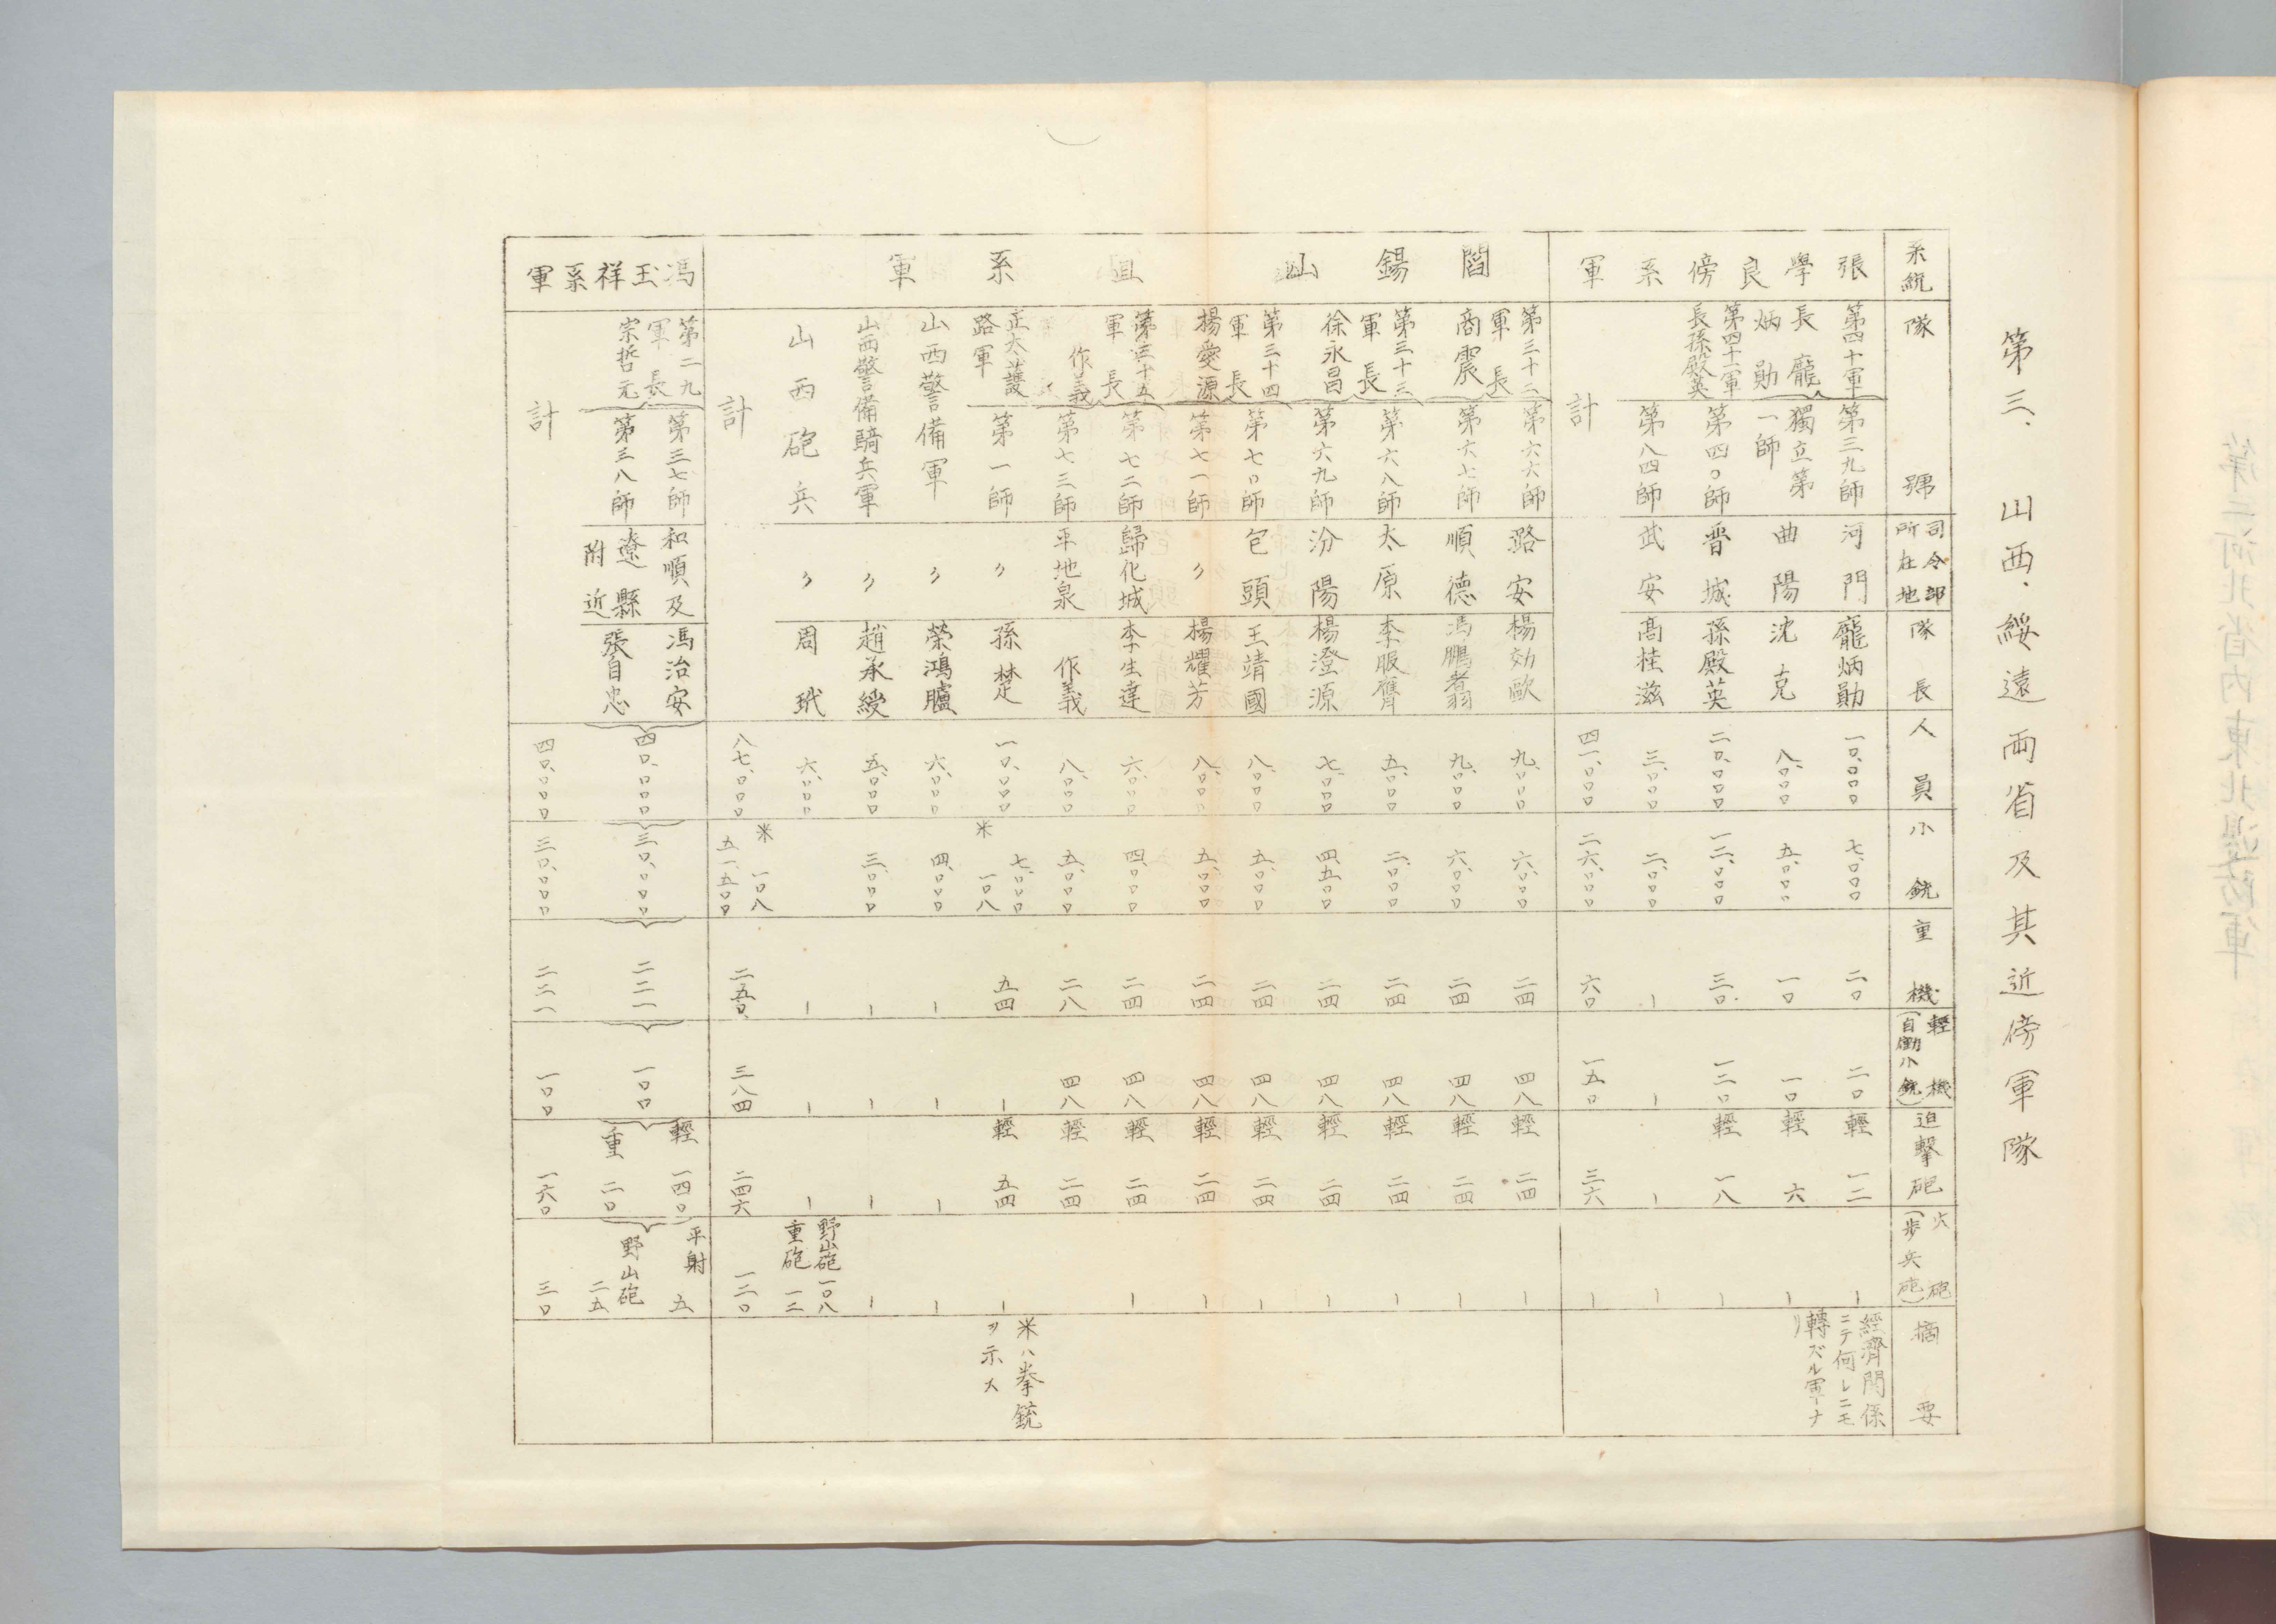 第三、山西、綏遠両省及其近傍軍隊
系統 隊號 司令部所在地 隊長 人員 小銃 重機 輕機(自働小銃) 迫撃砲 火砲(歩兵砲) 摘要
張學良傍系軍
第四十軍長龐炳勛 第三九師 河門 龐炳勛 一〇、〇〇〇 七、〇〇〇 二〇 二〇 輕 一二 ー 經濟関係ニテ何レニモ轉ズル軍ナリ
獨立第一師 曲陽 沈克 八、〇〇〇 五、〇〇〇 一〇 一〇 輕 六 ー
第四十一軍長孫殿英 第四〇師 晋城 孫殿英 二〇、〇〇〇 一二、〇〇〇 三〇 一二〇 輕 一八 ー
第八四師 武安 髙桂滋 三、〇〇〇 二、〇〇〇 ー ー ー ー
計 四一、〇〇〇 二六、〇〇〇 六〇 一五〇 三六 ー
閻錫山直系軍
第三十二軍長商震 第六六師 潞安 楊効歐 九、〇〇〇 六、〇〇〇 二四 四八 輕 二四 ー
第六七師 順德 馮鵬翥 九、〇〇〇 六、〇〇〇 二四 四八 輕 二四 ー
第三十三軍長徐永昌 第六八師 太原 李服膺 五、〇〇〇 二、〇〇〇 二四 四八 輕 二四 ー
第六九師 汾陽 楊澄源 七、〇〇〇 四、五〇〇 二四 四八 輕 二四 ー
第三十四軍長楊愛源 第七〇師 包頭 王靖國 八、〇〇〇 五、〇〇〇 二四 四八 輕 二四 ー
第七一師 〃 楊耀芳 八、〇〇〇 五、〇〇〇 二四 四八 輕 二四 ー
第三十五軍長 作義 第七二師 歸化城 李生達 六、〇〇〇 四、〇〇〇 二四 四八 輕 二四 ー
第七三師 平地泉 作義 八、〇〇〇 五、〇〇〇 二八 四八 輕 二四
正太護路軍 第一師 〃 孫楚 一〇、〇〇〇 七、〇〇〇 米 一〇八 五四 ー 輕 五四 ー 米ハ拳銃ヲ示ス
山西警備軍 〃 榮鴻臚 六、〇〇〇 四、〇〇〇 ー ー ー ー
山西警備騎兵軍 〃 趙承綬 五、〇〇〇 三、〇〇〇 ー ー ー ー
山西砲兵 〃 周玳 六、〇〇〇 ー ー ー 野山砲 一〇八 重砲 一二
計 八七、〇〇〇 米 一〇八 五一、五〇〇 二五〇 三八四 二四六 一二〇
馮玉祥系軍
第二九軍長宗哲元 第三七師 和順及遼縣附近 馮治安 四〇、〇〇〇 三〇、〇〇〇 二二一 一〇〇 輕 一四〇 重 二〇 平射 五 野山砲 二五
第三八師 張自忠
計 四〇、〇〇〇 三〇、〇〇〇 二二一 一〇〇 一六〇 三〇